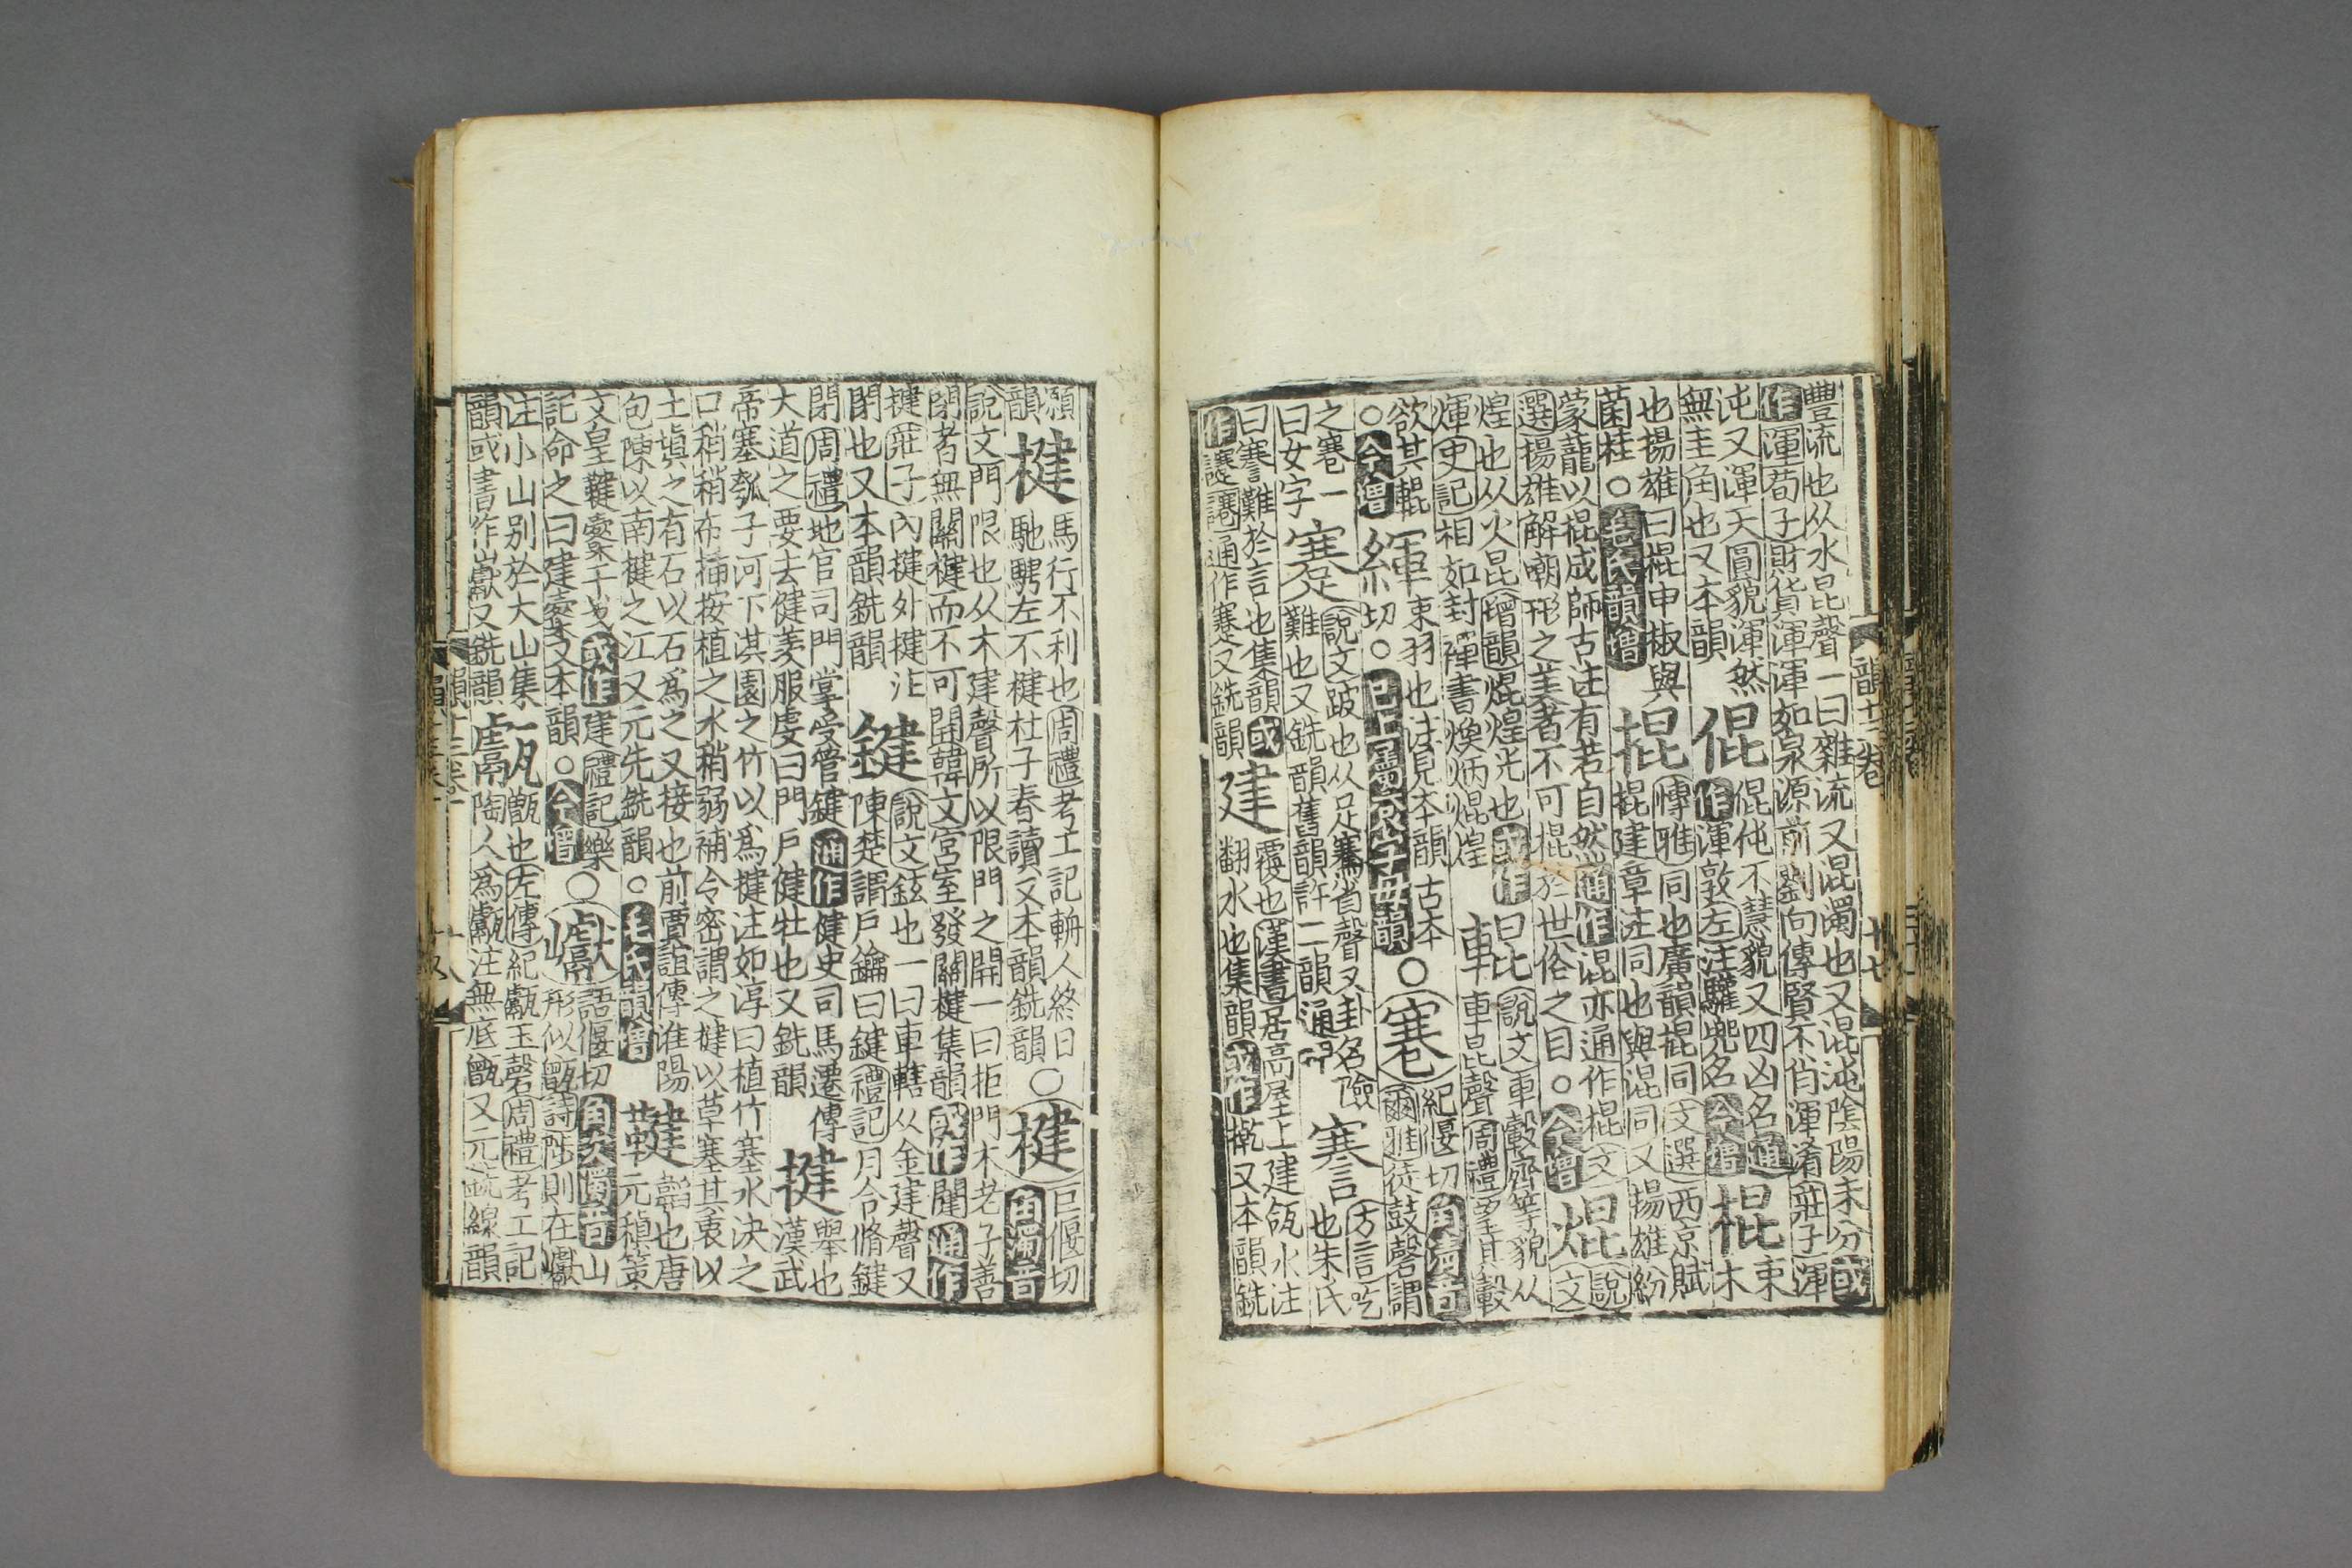 豐流也从水昆聲一曰雜流又混濁也又混沌陰陽未分或
作渾荀子財貨渾渾如泉源前劉向傳賢不肖渾淆莊子渾
沌又渾天圓貌渾然
無圭角也又本韻
倱
倱伅不慧貌又四凶名通
作渾敦左注驩兜名今增
棍
束
木
也揚雄曰棍申椒與
菌桂○毛氏韻增
掍
博雅同也廣韻掍同文選西京賦
掍建章注同也與混同又揚雄紛
蒙蘢以棍成師古注有若自然通作混亦通作棍文
選揚雄解嘲形之美者不可棍於世俗之目○今增
焜
說
文
煌也从火昆增韻焜煌光也或作
煇史記相如封禪書煥炳焜煌
輥
說文車轂齊等貌从
車昆聲周禮望其轂
欲其輥
○今增
緷
束羽也注見本韻古本
切○巳上屬袞字母韻
○寋
紀偃切角清音
爾雅徒鼓磬謂
之寋一
曰女字
蹇
說文跛也从足寒省聲又卦名險
難也又銑韻舊韻許二韻通押
謇
方言吃
也朱氏
曰謇難於言也集韻或
作通作蹇又銑韻
建
覆也漢書居高屋上建瓴水注
翻水也集韻或作又本韻銑
韻十二卷
十七
願
韻
楗
馬行不利也周禮考工記輈人終日
馳騁左不楗杜子春讀又本韻銑韻
○楗
巨偃切
角濁音
說文門限也从木建聲所以限門之開一曰拒門木老子善
閉者無關楗而不可開韓文宮室發關楗集韻或作閳通作
揵莊子內揵外揵注
閉也又本韻銑韻
鍵
說文鉉也一曰車轄从金建聲又
陳楚謂戶鑰曰鍵禮記月令脩鍵
閉周禮地官司門掌受管鍵通作健史司馬遷傳
大道之要去健羨服虔曰門戶健牡也又銑韻
揵
舉也
漢武
帝塞瓠子河下淇園之竹以爲揵注如淳曰植竹塞水決之
口稍稍布揷按植之水稍弱補令密謂之揵以草塞其裏以
土塡之有石以石爲之又接也前賈誼傳淮陽
包陳以南揵之江又元先銑韻○毛氏韻增
鞬
韜也唐
元稹策
文皇鞬櫜干戈或作建禮記樂
記命之曰建櫜又本韻○今增
○巘
語偃切角次濁音山
形似甑詩陟則在巘
注小山別於大山集
韻或書作巚又銑韻
甗
甑也左傳紀甗玉磬周禮考工記
陶人爲甗注無底甑又元銑線韻